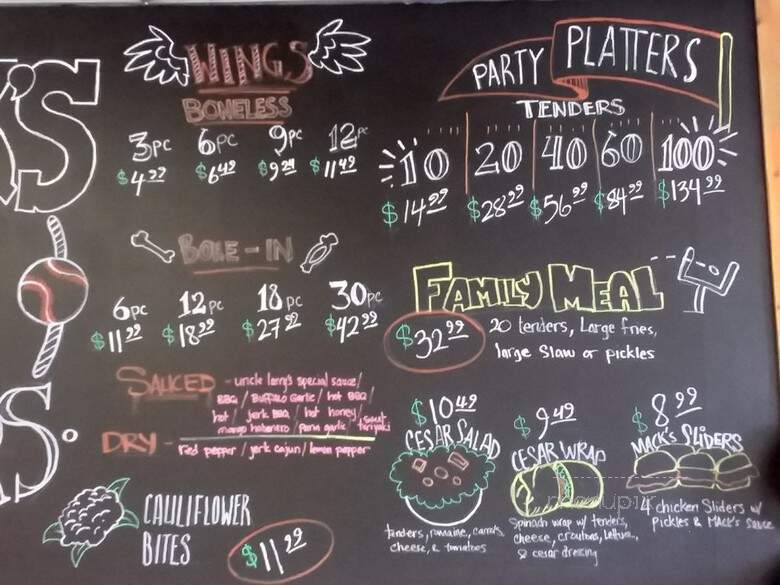 K'S
S.
WINGS
BONELESS
3pc 6pc 9pc 12pc
$4.99 $6.49 $9.29 $11.49
BONE-IN
6pc 12pc 18pc 30pc
$11.99 $18.99 $27.99 $42.99
SAUCED - uncle larry's special sauce/
BBQ / Buffalo Garlic / hot BBQ
hot / jerk BBQ / hot honey / sweet
mango habanero / parm garlic / teriyaki
DRY - red pepper / jerk cajun / lemon pepper
CAULIFLOWER
BITES
$11.99
PARTY PLATTERS
TENDERS
10 20 40 60 100
$14.99 $28.99 $56.99 $84.99 $134.99
FAMILY MEAL
$32.99 20 tenders, Large fries,
large Slaw or pickles
$10.49
CESAR SALAD
tenders, romaine, carrots,
cheese, & tomatoes
$9.49
CESAR WRAP
Spinach wrap w/ tenders,
cheese, croutons, lettuce,
& cesar dressing
$8.99
MACK'S SLIDERS
chicken Sliders w/
pickles & MACK's Sauce